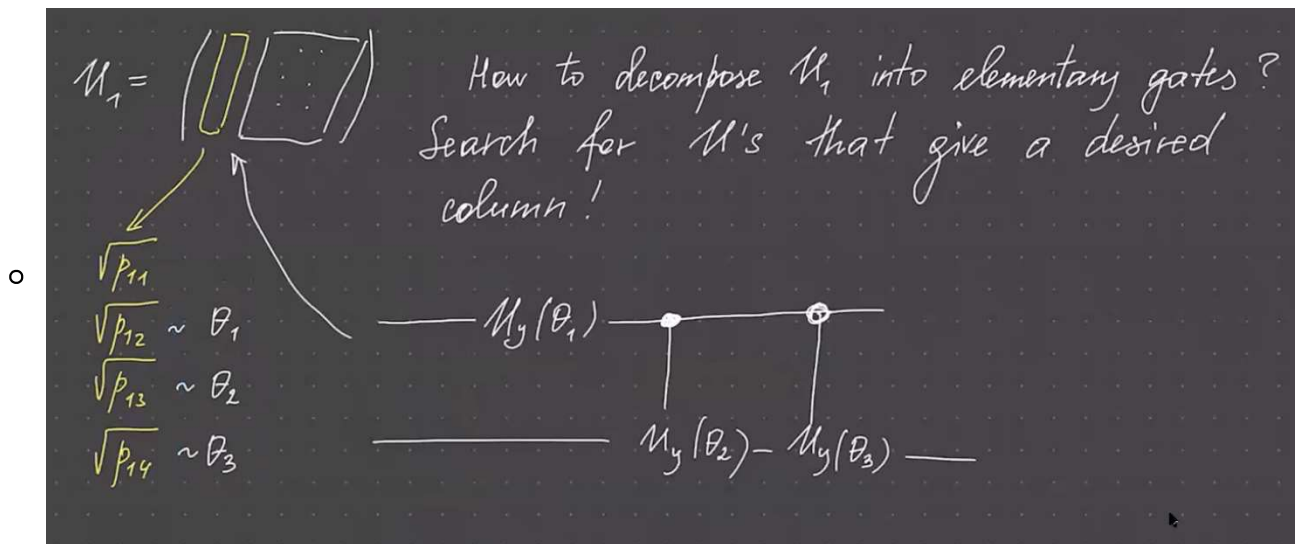 U₁ =
How to decompose U₁ into elementary gates?
Search for U's that give a desired
column!
√p₁₁
√p₁₂ ~ θ₁
√p₁₃ ~ θ₂
√p₁₄ ~ θ₃
U_y(θ₁)
U_y(θ₂) – U_y(θ₃)